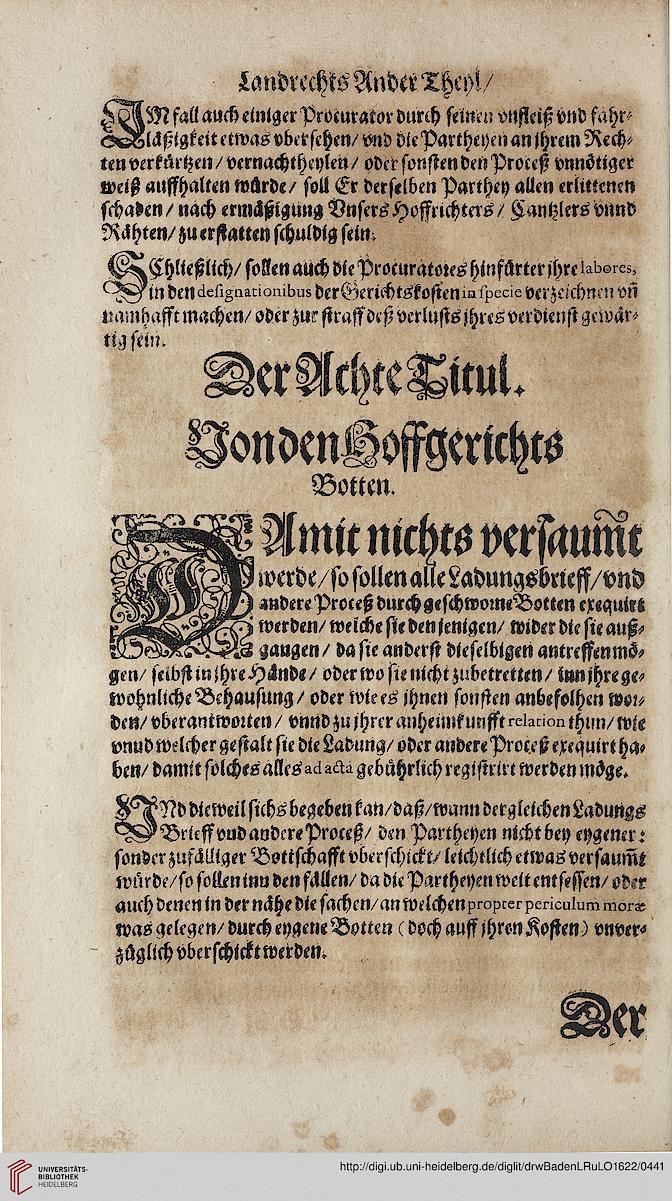 Landrechts Ander Theyl/
IM fall auch einiger Procurator durch seinen vnfleiß vnd fahr⸗
läßigkeit etwas vbersehen/ vnd die Partheyen an jhrem Rech⸗
ten verkürtzen/ vernachtheylen/ oder sonsten den Proceß vnnötiger
weiß auffhalten würde/ soll Er derselben Parthey allen erlittenen
schaden/ nach ermäßigung Vnsers Hoffrichters/ Cantzlers vnnd
Rähten/ zu erstatten schuldig sein.
SChließlich/ sollen auch die Procuratores hinfürter jhre labores,
in den designationibus der Gerichtskosten in specie verzeichnen vñ
namhafft machen/ oder zur straff deß verlusts jhres verdienst gewär⸗
tig sein.
Der Achte Titul.
Von den Hoffgerichts
Botten.
DAmit nichts versaumt
werde/ so sollen alle Ladungsbrieff/ vnd
andere Proceß durch geschworne Botten exequirt
werden/ welche sie den jenigen/ wider die sie auß⸗
gangen/ da sie anderst dieselbigen antreffen mö⸗
gen/ selbst in jhre Hände/ oder wo sie nicht zubetretten/ inn jhre ge⸗
wohnliche Behausung/ oder wie es jhnen sonsten anbefolhen wor⸗
den/ vberantworten/ vnnd zu jhrer anheimkunfft relation thun/ wie
vnnd welcher gestalt sie die Ladung/ oder andere Proceß exequirt ha⸗
ben/ damit solches alles ad acta gebührlich registrirt werden möge.
VNd dieweil sichs begeben kan/ daß/ wann dergleichen Ladungs
Brieff vnd andere Proceß/ den Partheyen nicht bey eygener:
sonder zufälliger Bottschafft vberschickt/ leichtlich etwas versaumt
würde/ so sollen inn den fällen/ da die Partheyen weit entsessen/ oder
auch denen in der nähe die sachen/ an welchen propter periculum moræ
was gelegen/ durch eygene Botten (doch auff jhren Kosten) vnver⸗
züglich vberschickt werden.
Der
UNIVERSITÄTS-
BIBLIOTHEK
HEIDELBERG
http://digi.ub.uni-heidelberg.de/diglit/drwBadenLRuLO1622/0441